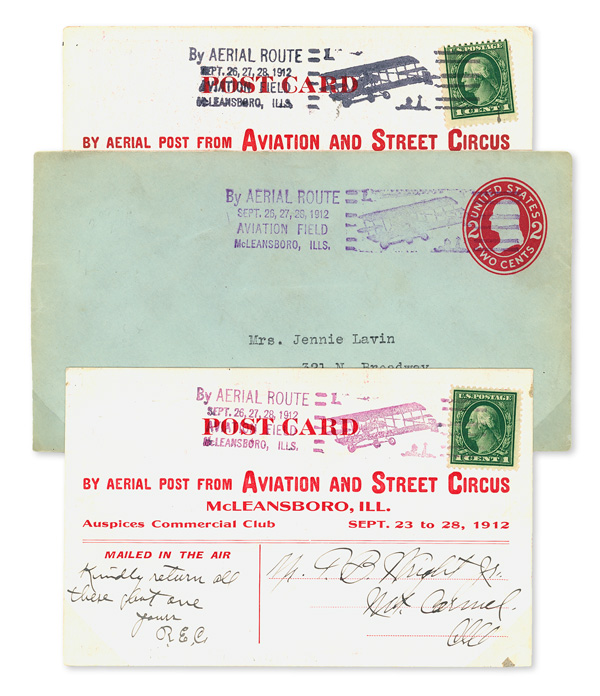 By AERIAL ROUTE
SEPT. 26, 27, 28, 1912
AVIATION FIELD
McLEANSBORO, ILLS.
POST CARD
U.S. POSTAGE
1 CENT 1
BY AERIAL POST FROM AVIATION AND STREET CIRCUS
By AERIAL ROUTE
SEPT. 26, 27, 28, 1912
AVIATION FIELD
McLEANSBORO, ILLS.
UNITED STATES
2 2
TWO CENTS
Mrs. Jennie Lavin
321 N. Broadway
By AERIAL ROUTE
SEPT. 26, 27, 28, 1912
AVIATION FIELD
McLEANSBORO, ILLS.
POST CARD
U.S. POSTAGE
1 CENT 1
BY AERIAL POST FROM AVIATION AND STREET CIRCUS
McLEANSBORO, ILL.
Auspices Commercial Club SEPT. 23 to 28, 1912
MAILED IN THE AIR
Kindly return all
these but one
yours
R.E.C.
Mr. F. B. Wright Jr.
Mt. Carmel
Ill